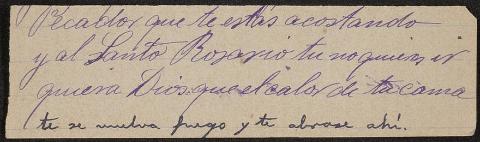 Pecador que te estás acostando
y al Santo Rosario tu no quieres ir
quiera Dios que el calor de tu cama
te se vuelva fuego y te abrase ahí.